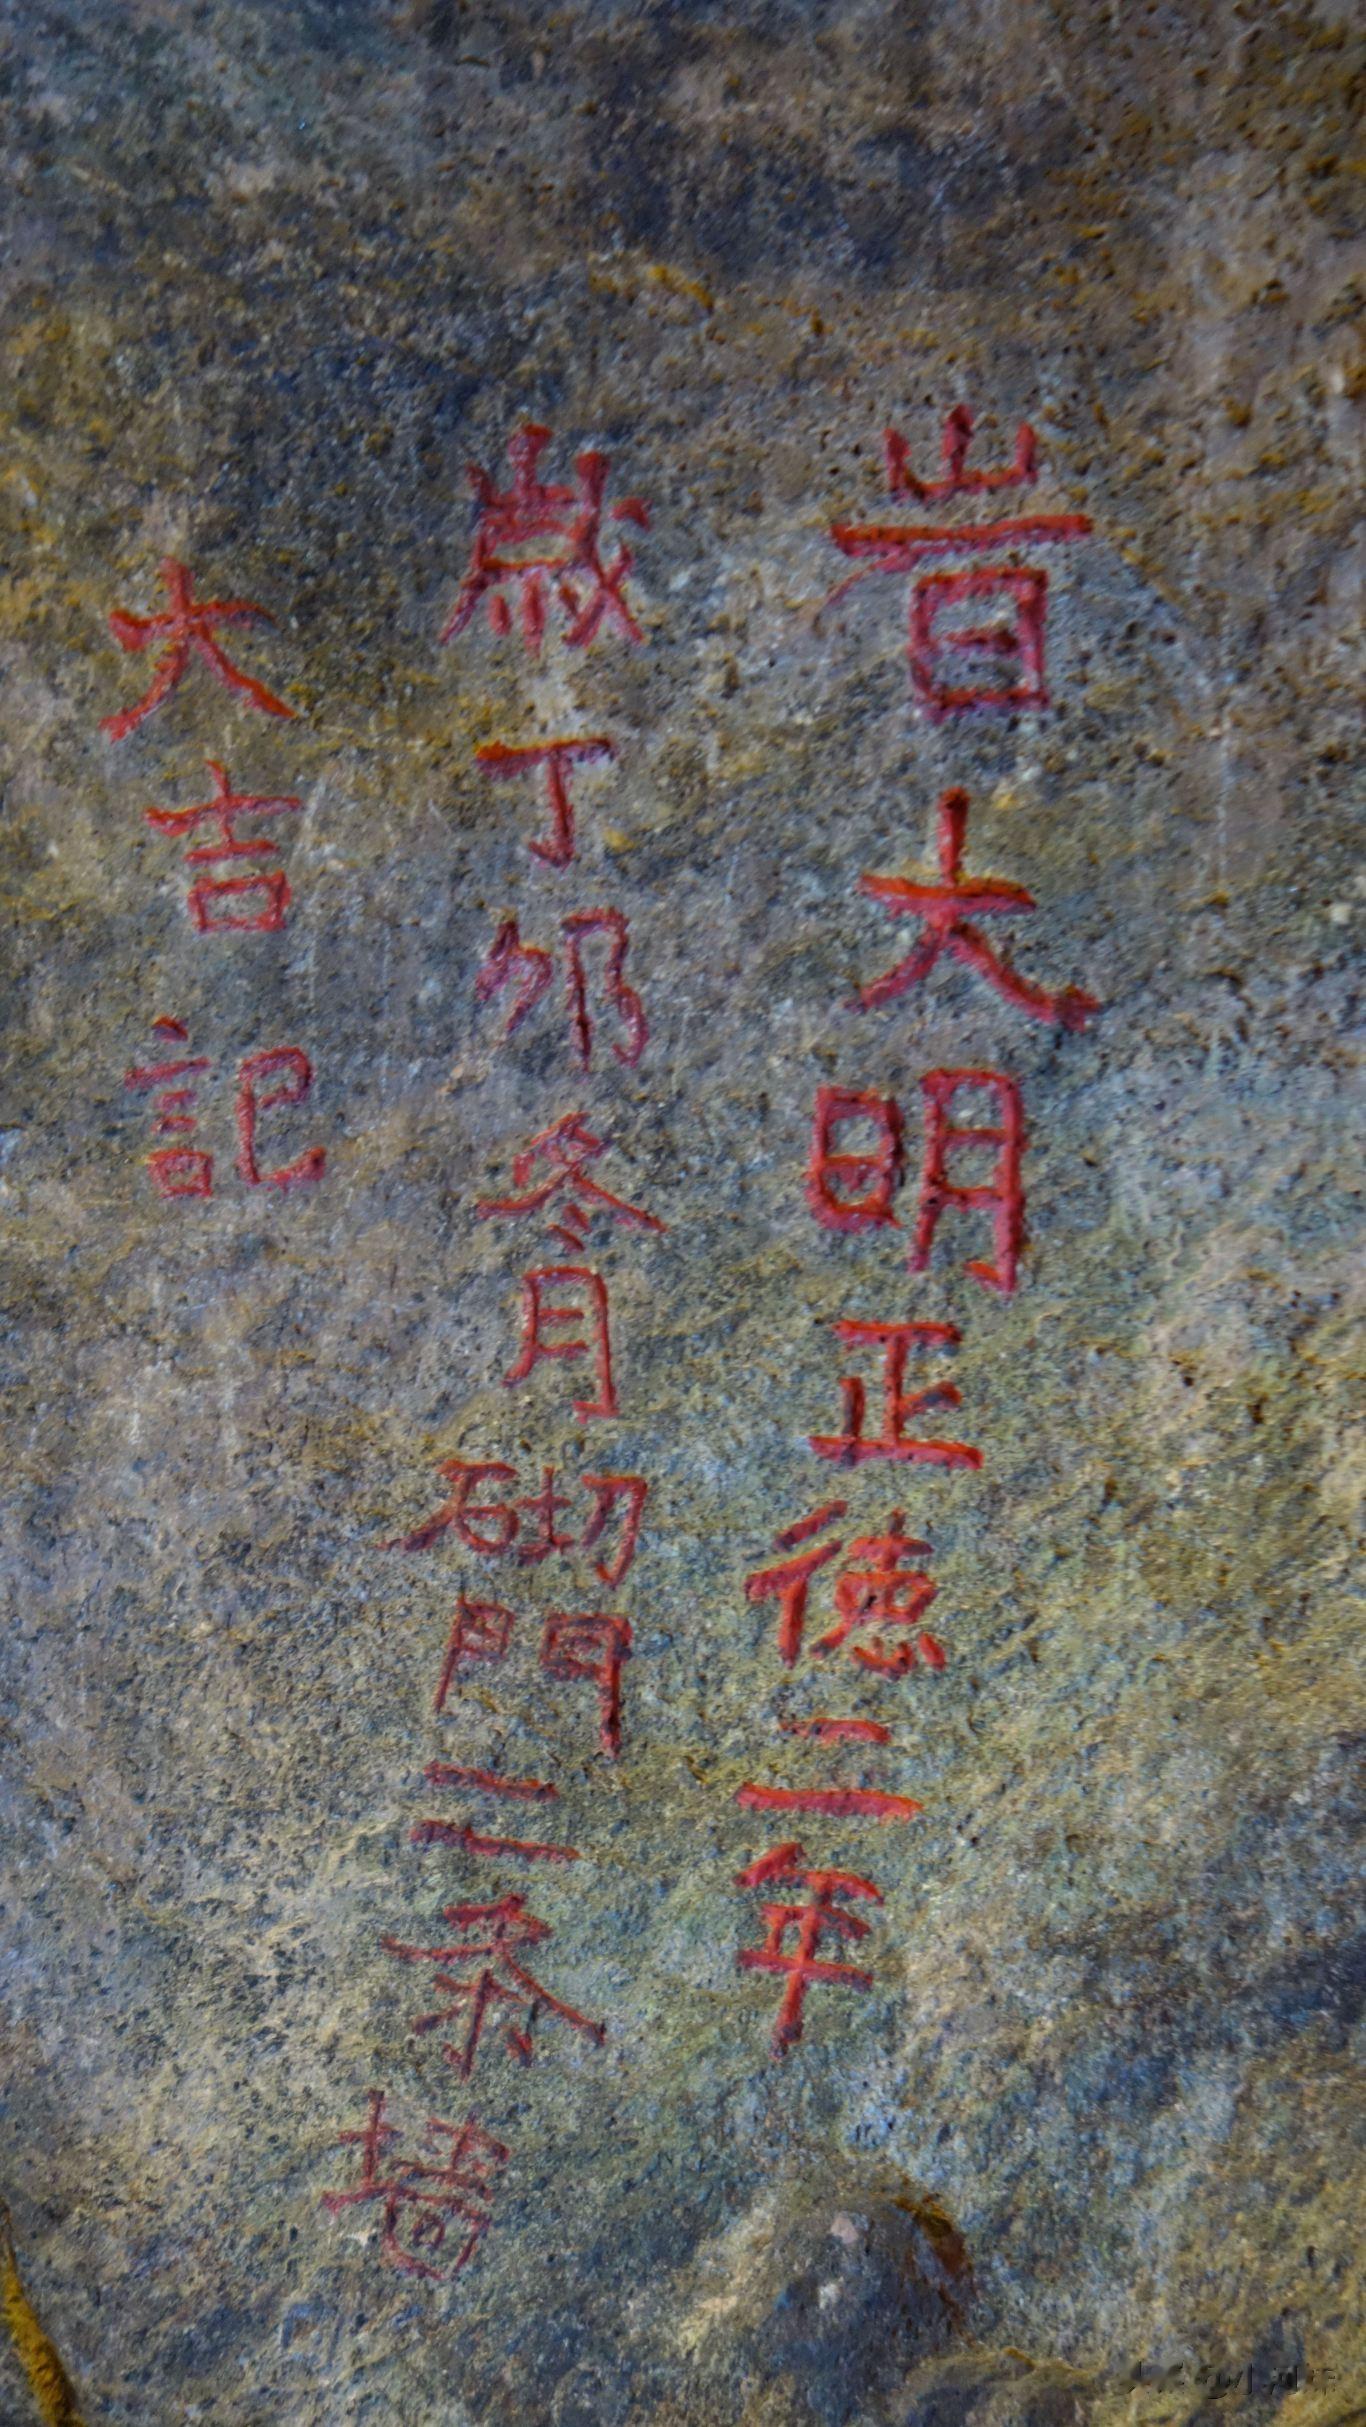 旹大明正德二年
歲丁夘冬月砌門二条墻
大吉記